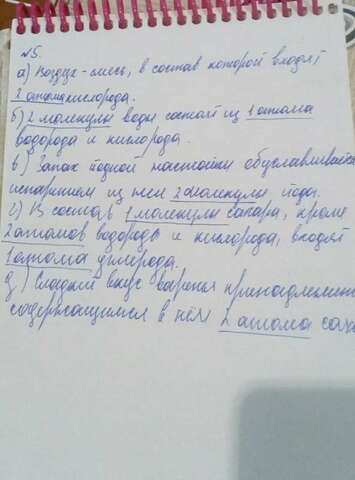 №5.
а) Воздух - смесь, в состав которой входят
2 атома кислорода.
б) 2 молекулы воды состоят из 1 атома
водорода и кислорода.
в) Запах йодной настойки обуславливается
испарением из нее 2 молекулы йода.
г) В состав 1 молекулы сахара, кроме
2 атомов водорода и кислорода, входят
1 атома углерода.
д) Сладкий вкус варенья принадлежит
содержащимся в нём 2 атома саха